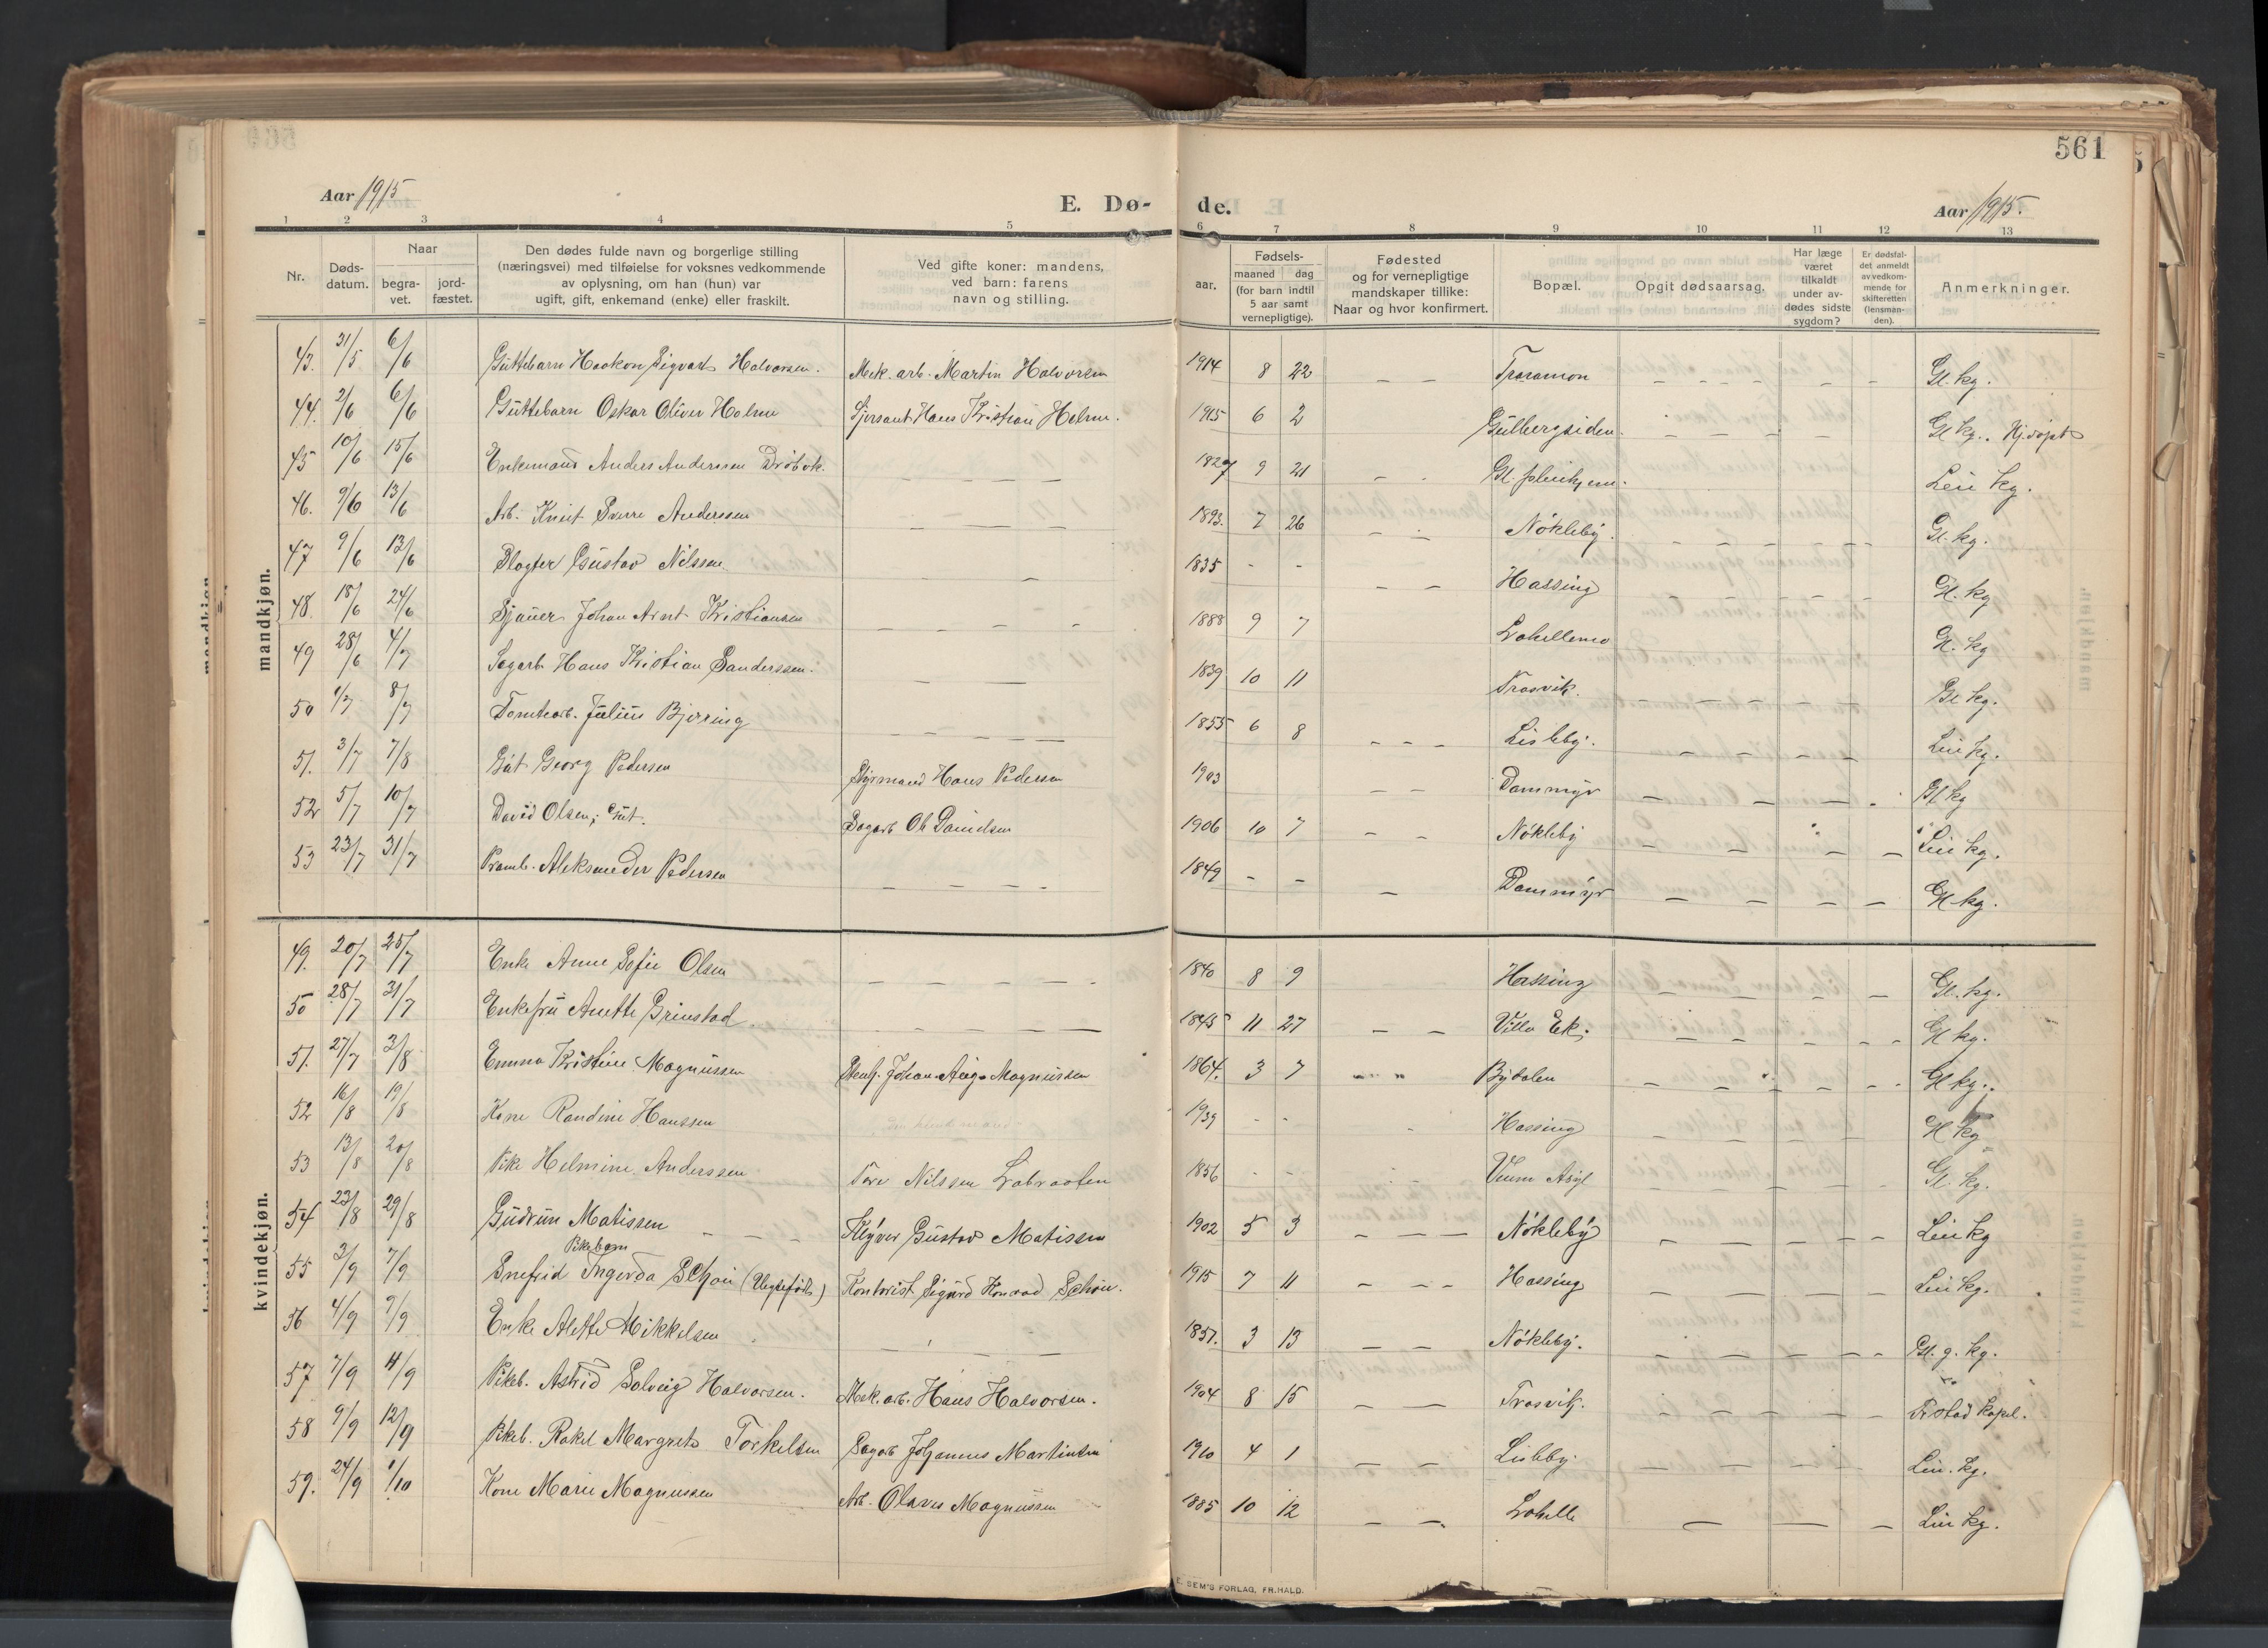 561
Aar 1915
E. Dø- de.
Aar 1915.
1 2 3 4 5 6 7 8 9 10 11 12 13
Nr.
Døds-
datum.
Naar
begra-
vet.
jord-
fæstet.
Den dødes fulde navn og borgerlige stilling
(næringsvei) med tilføielse for voksnes vedkommende
av oplysning, om han (hun) var
ugift, gift, enkemand (enke) eller fraskilt.
Ved gifte koner: mandens,
ved barn: farens
navn og stilling.
Fødsels-
aar.
maaned
dag
(for barn indtil
5 aar samt
vernepligtige).
Fødested
og for vernepligtige
mandskaper tillike:
Naar og hvor konfirmert.
Bopæl.
Opgit dødsaarsag.
Har læge
været
tilkaldt
under av-
dødes sidste
sygdom?
Er dødsfal-
det anmeldt
av vedkom-
mende for
skifteretten
(lensman-
den).
Anmerkninger.
mandkjøn.
43. 31/5 6/6 Guttebarn Haakon Sigvart Halvorsen. Mek. arb. Martin Halvorsen 1914 8 22 — — Gl. kg.
44. 2/6 6/6 Guttebarn Oskar Oliver Holm Hans Kristian Holm. 1915 6 2 Gulbergsiden. — — — — Gl kg. Hj.døpt
45 10/6 15/6 Enkemand Anders Anderssen Drøbak. — — — — 1827 9 21 — Gl. pleiehjem. Lein kg.
46. 9/6 13/6 Arb. Knut Sverre Anderssen — — — — 1893. 7 26 — — Nøkleby. — — — — Gl. kg.
47 9/6 13/6 Slagter Gustav Nilssen — — 1835 - - — — Hassing — — — — Gl. kg
48. 18/6 24/6 Sjauer Johan Arnt Kristiansen — — — — 1888 9 7 Gl. kg
49 28/6 4/7 Sagarb Hans Kristian Sanderssen. — — — 1839 10 11 Trosvik. — — — — Gl kg.
50 1/7 8/7 Tomtearb. Julius Bjerring — — — — 1855 6 8 — — — Lisleby. — — — Lein kg.
51. 3/7 7/8 Gut Georg Pedersen Styrmand Hans Pedersen 1903 — — Dammyr — — — — Gl kg
52 5/7 10/7 David Olsen; Gut. Sagarb Ole Danielsen 1906 10 7 — — Nøkleby — — — — Lein kg.
53 23/7 31/7 Aleksander Pedersen — — — — 1849 - - — Dammyr — — — — Gl kg.
kvindekjøn.
49. 20/7 25/7 Enke Anne Sofie Olsen — — — — 1840 8 9 Hassing — — — — Gl. kg.
50 28/7 31/7 Enkefru Anette Grinstad — — — — 1845 11 27 — — Villa Ek. — — — — Gl kg.
51. 27/7 3/8 Emma Kristine Magnussen Stenh. Johan Aug. Magnussen 1864. 3 7 Bydalen — — — — Gl kg.
52 16/8 19/8 Kone Randine Hanssen 1939 - - Hassing — — — — Gl kg
53 13/8 20/8 Pike Helmine Anderssen Tore Nilssen Labraaten 1856 - - Veum Asyl — — — — Gl. kg.
54 23/8 29/8 Gudrun Matissen — — — Kløver Gustav Matissen 1902 5 3 — — — Nøkleby — — — — Lein kg
Pikebarn
55 3/9 7/9 Snefrid Ingerda Schou (Uegtefødt) Kontorist Sigurd Konrad Schou. 1915 7 11 — — — Hassing — — — — Lein kg.
56 4/9 9/9 Enke Alette Mikkelsen — — — 1851. 3 13 — — Nøkleby. — — — — Gl. g. kg.
57 7/9 11/9 Pikeb. Astrid Solveig Halvorsen. Mek. arb. Hans Halvorsen. 1904 8 15 — — Trosvik. — — — — kapel.
58 9/9 12/9 Pikeb. Rakel Margrete Torkelsen Sagarb Johannes Martinsen 1910 4 1 — — Lisleby. — — — — Lein. kg.
59. 24/9 1/10 Kone Marie Magnussen Arb. Olaves Magnussen 1885 10 12 — — Lahelle — — — Lein kg.
E. SEM'S FORLAG, FR.HALD.